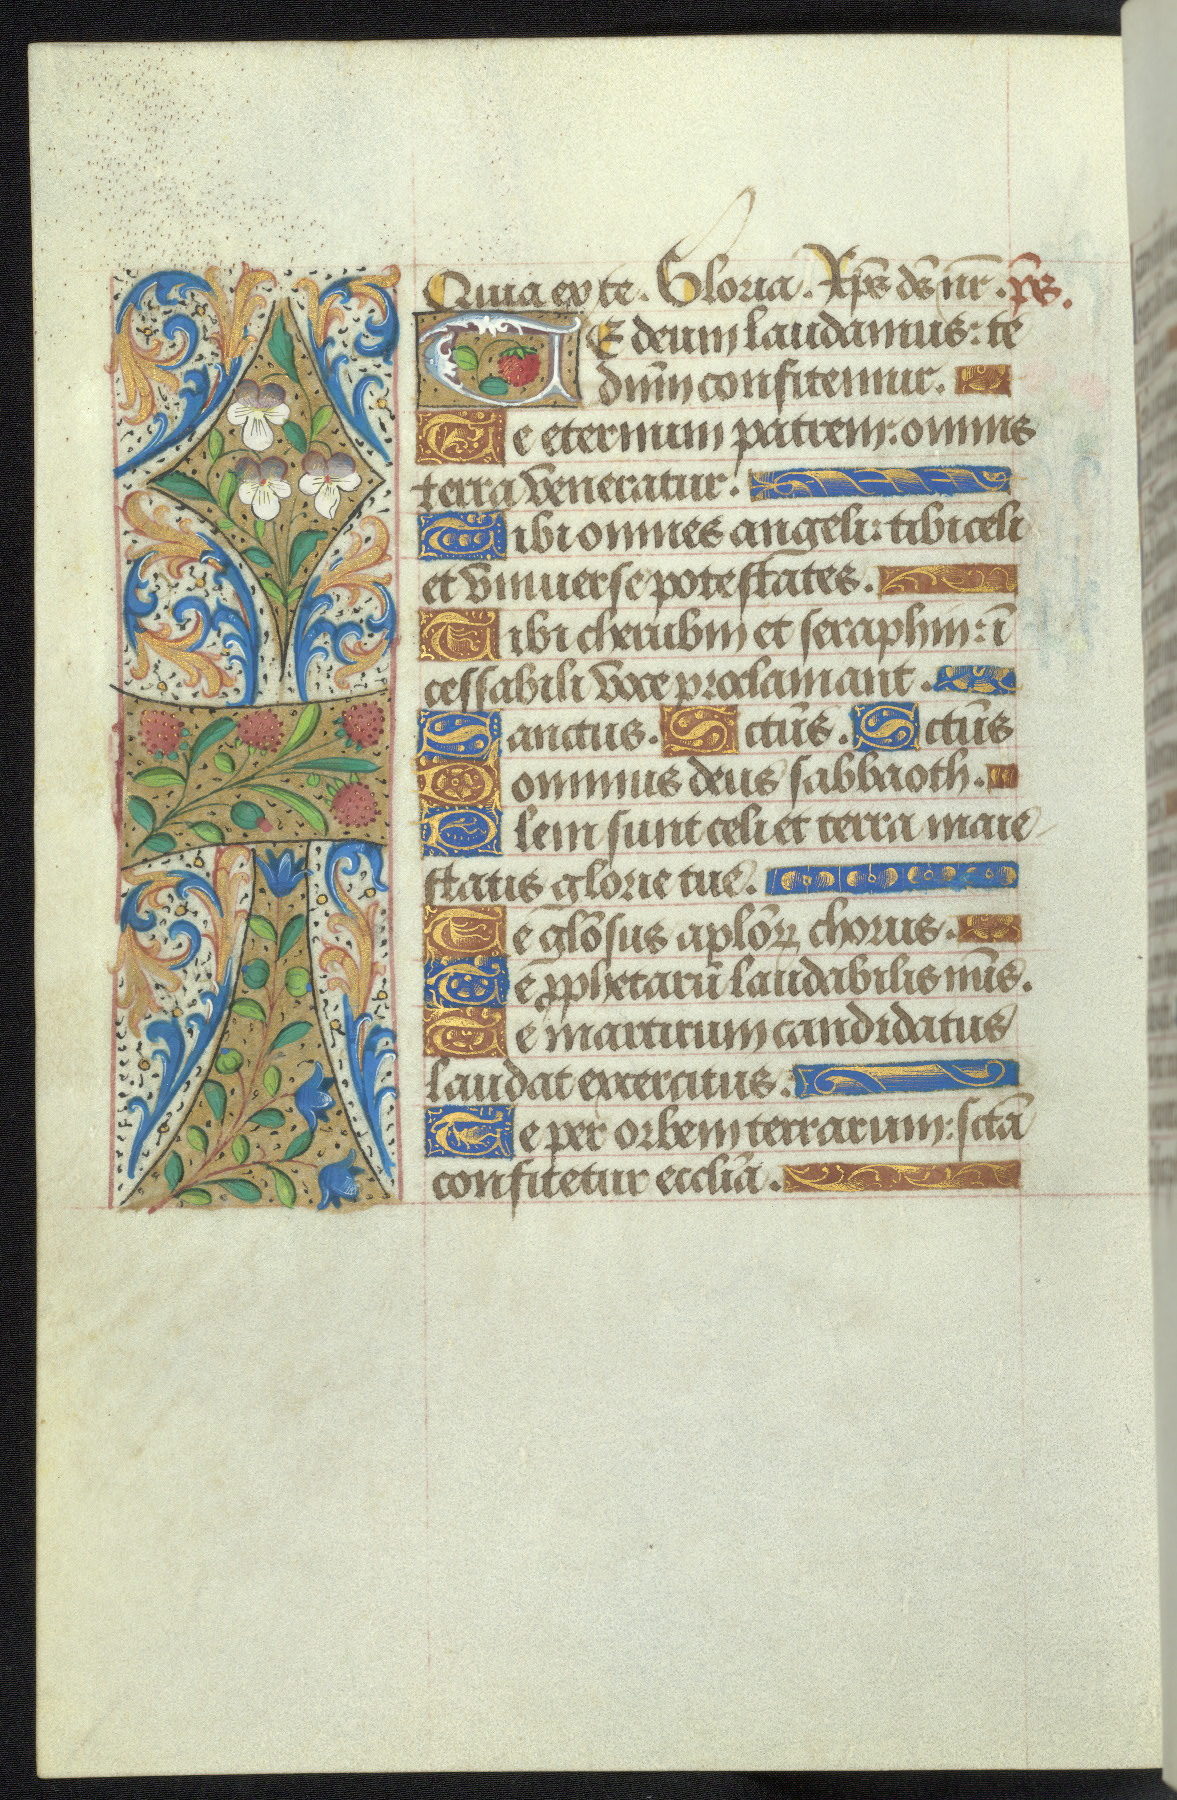 Quia ex te. Gloria. Xp̄s ds̄ nr̄. ps̄.
TE deum laudamus: te
dn̄m confitemur.
Te eternum patrem: omnis
terra veneratur.
Tibi omnes angeli: tibi celi
et vniuerse potestates.
Tibi cherubin et seraphin: ī
cessabili voce proclamant.
Sanctus. Sctūs. Sctūs
Dominus deus sabbaoth.
Pleni sunt celi et terra maie
statis glorie tue.
Te glōsus aplōꝝ chorus.
Te ꝓphetarū laudabilis nūs.
Te martirum candidatus
laudat exercitus.
Te per orbem terrarum: sctā
confitetur ecclīa.